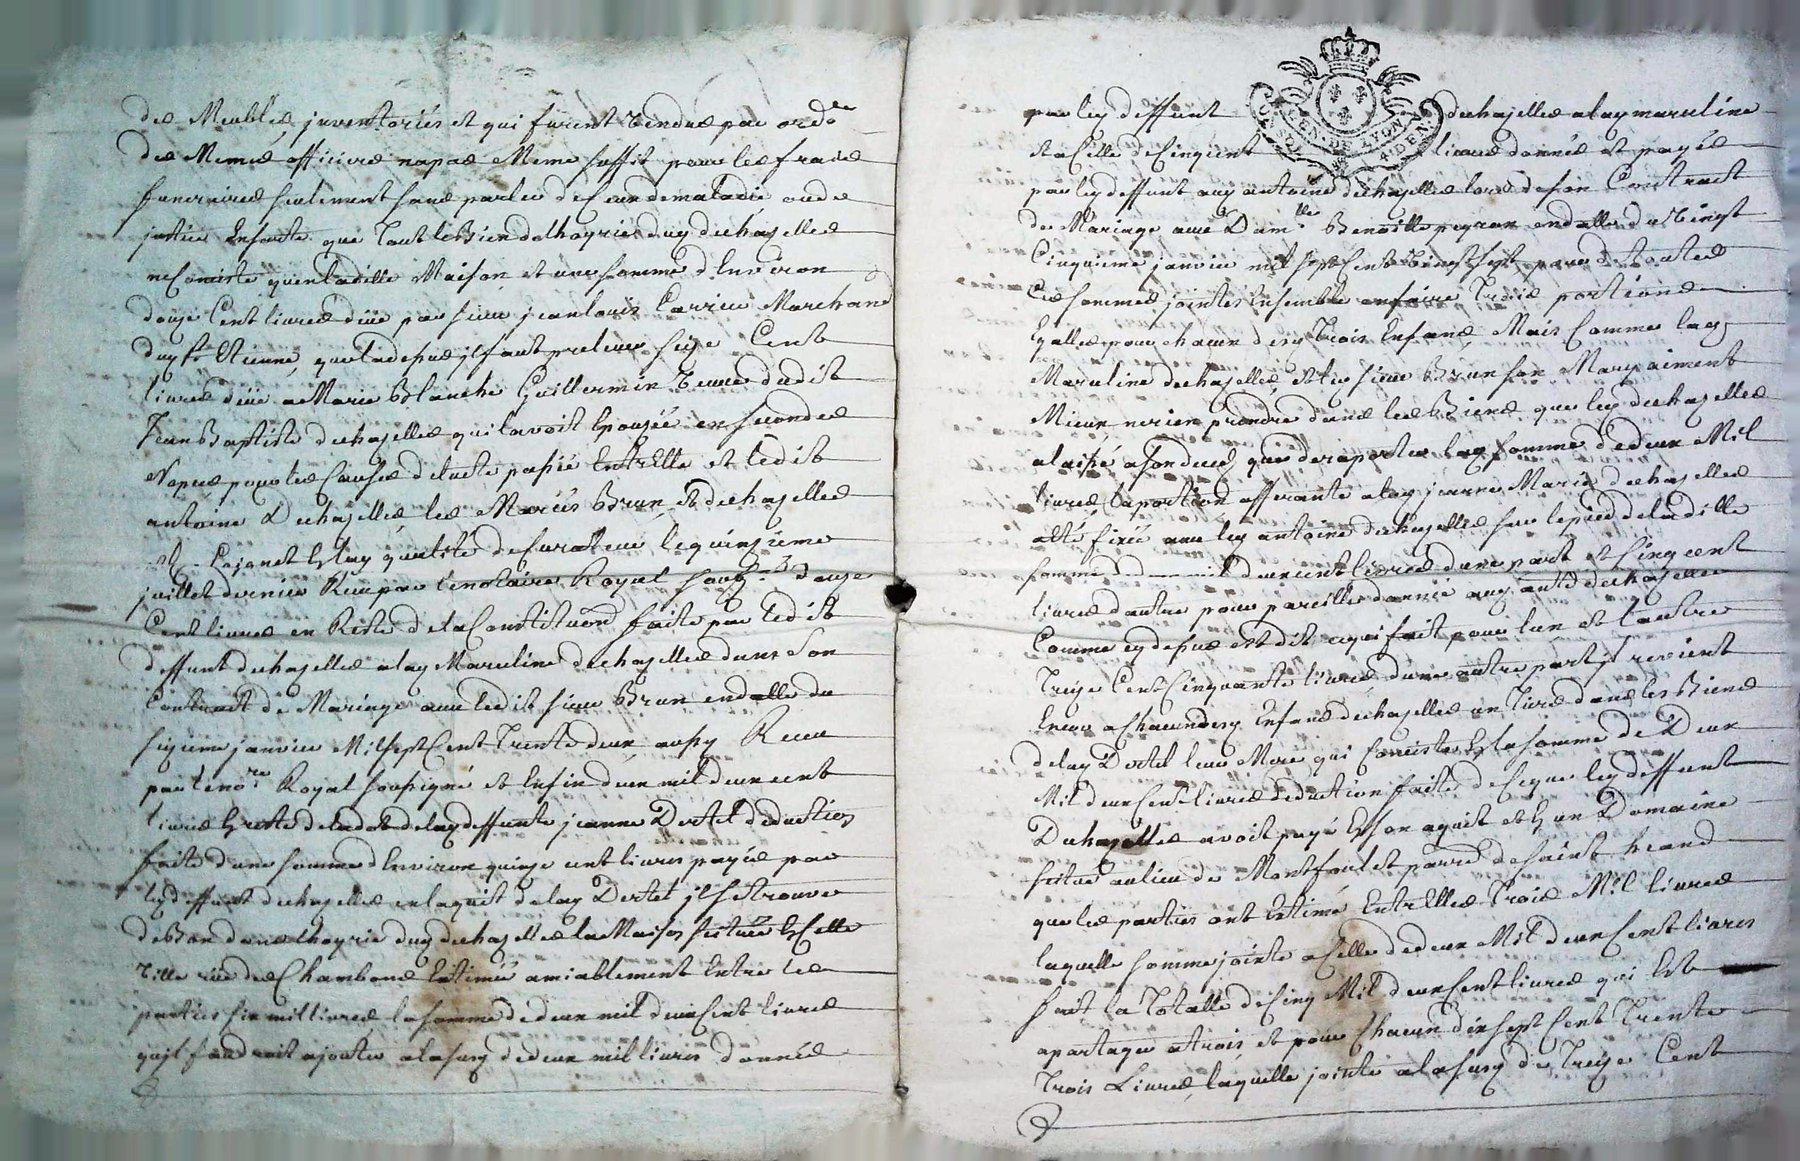 des Meubles jnventoriés et qui furent vendus par ord.re
des Memes officiers napas Meme suffit pour les fraix
funeraires seulement sans parler de ceux de maladie ou de
justice Ensorte que Tout le Bien delhoyrie duq dechazelles
ne Consiste quen ladille Maison et une somme dEnviron
douze Cent livres düe par sieur jean louis Carrier Marchand
duq St Etienne, que la depus jl faut prelever seize Cent
livres düe a Marie Blanche Guillermin veuve dudit
Jean Baptiste dechazelles qui lavoit Epousée en secondes
Nopces pour les Causes de lacte passé Entr Elle et ledit
antoine Dechazelles les Mariés Brun et dechazelles
et Lajanet En lay qualité de Curateur le quinzieme
juillet dernier Reçu par le notaire Royal soub.né douze
Cent livres en Reste de la Constitution faite par ledit
deffunt dechazelles a lay Marceline dechazelles dans Son
Contract de Mariage avec ledit sieur Brun en datte du
sixieme janvier Mil sept Cent Trente deux aussy Receu
par le no.re Royal soussigné et Enfin deux mil deux cent
livres En reste de la dot de lay deffunte jeanne Dertel deduction
faite dune somme dEnviron quinze cent livres payée par
leq deffunt dechazelles en laquit de lay Dertel jl se trouve
de Bon dans lhoyrie duq dechazelles la Maison scituée En Cette
Ville rüe des Chambons Estimée amiablement Entre les
parties six mil livres, la somme de deux mil deux Cent livres
quil faudroit ajouter a la susq de deux mil livres donnée
par leq deffunt dechazelles a lay marceline
et a Celle de Cinq cent livres donnée et payée
par leq deffunt auq antoine dechazelles lors de son Contract
de Mariage avec Dam.lle Benoitte peyron en datte du vingt
Cinquieme janvier mil sept Cent vingt sept pour de toutes
Ces sommes jointes Ensemble en faire Trois portions
Egalles pour chacun desq Trois Enfans, Mais Comme lay
Marceline dechazelles et le sieur Brun son Mary aiment
Mieux ne rien prendre dans les Biens que leq dechazelles
a laissé a son deces que de raporter lay somme de deux Mil
livres, la portion afferante a lay jeanne Marie dechazelles
a été fixée avec leq antoine dechazelles sur le pied de ladille
somme de deux mil deux cent livres dune part et Cinq cent
livres dautre pour pareille donnée auq ant.e dechazelles
Comme cy depus est dit ce qui fait pour lun et lautre
Treize Cent Cinquante livres, dune autre part jl revient
Encor a Chacun desq Enfans dechazelles un Tiers dans les Biens
de lay Dertel leur Mere qui Consiste En la somme de Deux
Mil deux Cent livres deduction faite de ce que leq deffunt
Dechazelles avoit payé En son aquit et En un Domaine
scitué au lieu de Montfoulet parroisse de saint heand
que les parties ont Estimé Entr Elles Trois Mil livres
laquelle somme jointe a Celle de deux Mil deux Cent livres
fait la Totalle de Cinq Mil deux Cent livres qui Est
a partager a trois et pour Chacun dix sept Cent Trente
Trois Livres, laquelle jointe a la susq de Treize Cent